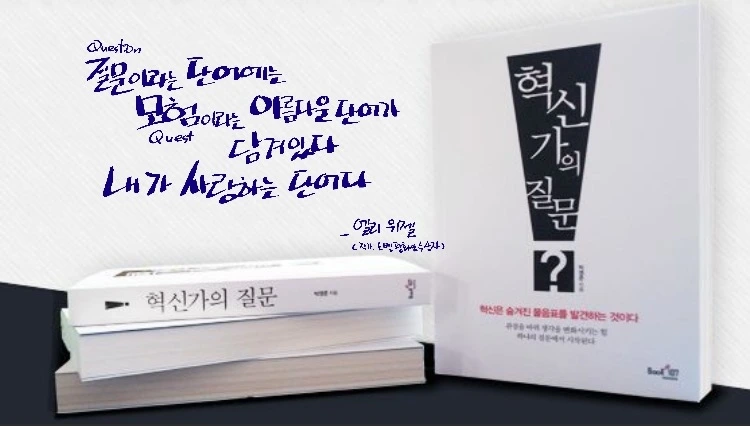 Question
질문이라는 단어에는
모험이라는 아름다운 단어가
Quest
담겨있다
내가 사랑하는 단어다
- 엘리 위젤
(작가, 노벨평화상수상자)
혁신
가의
질문
?
박영준 지음
혁신은 숨겨진 물음표를 발견하는 것이다
관점을 바꿔 생각을 변화시키는 힘
하나의 질문에서 시작된다
혁신가의 질문
박영준 지음